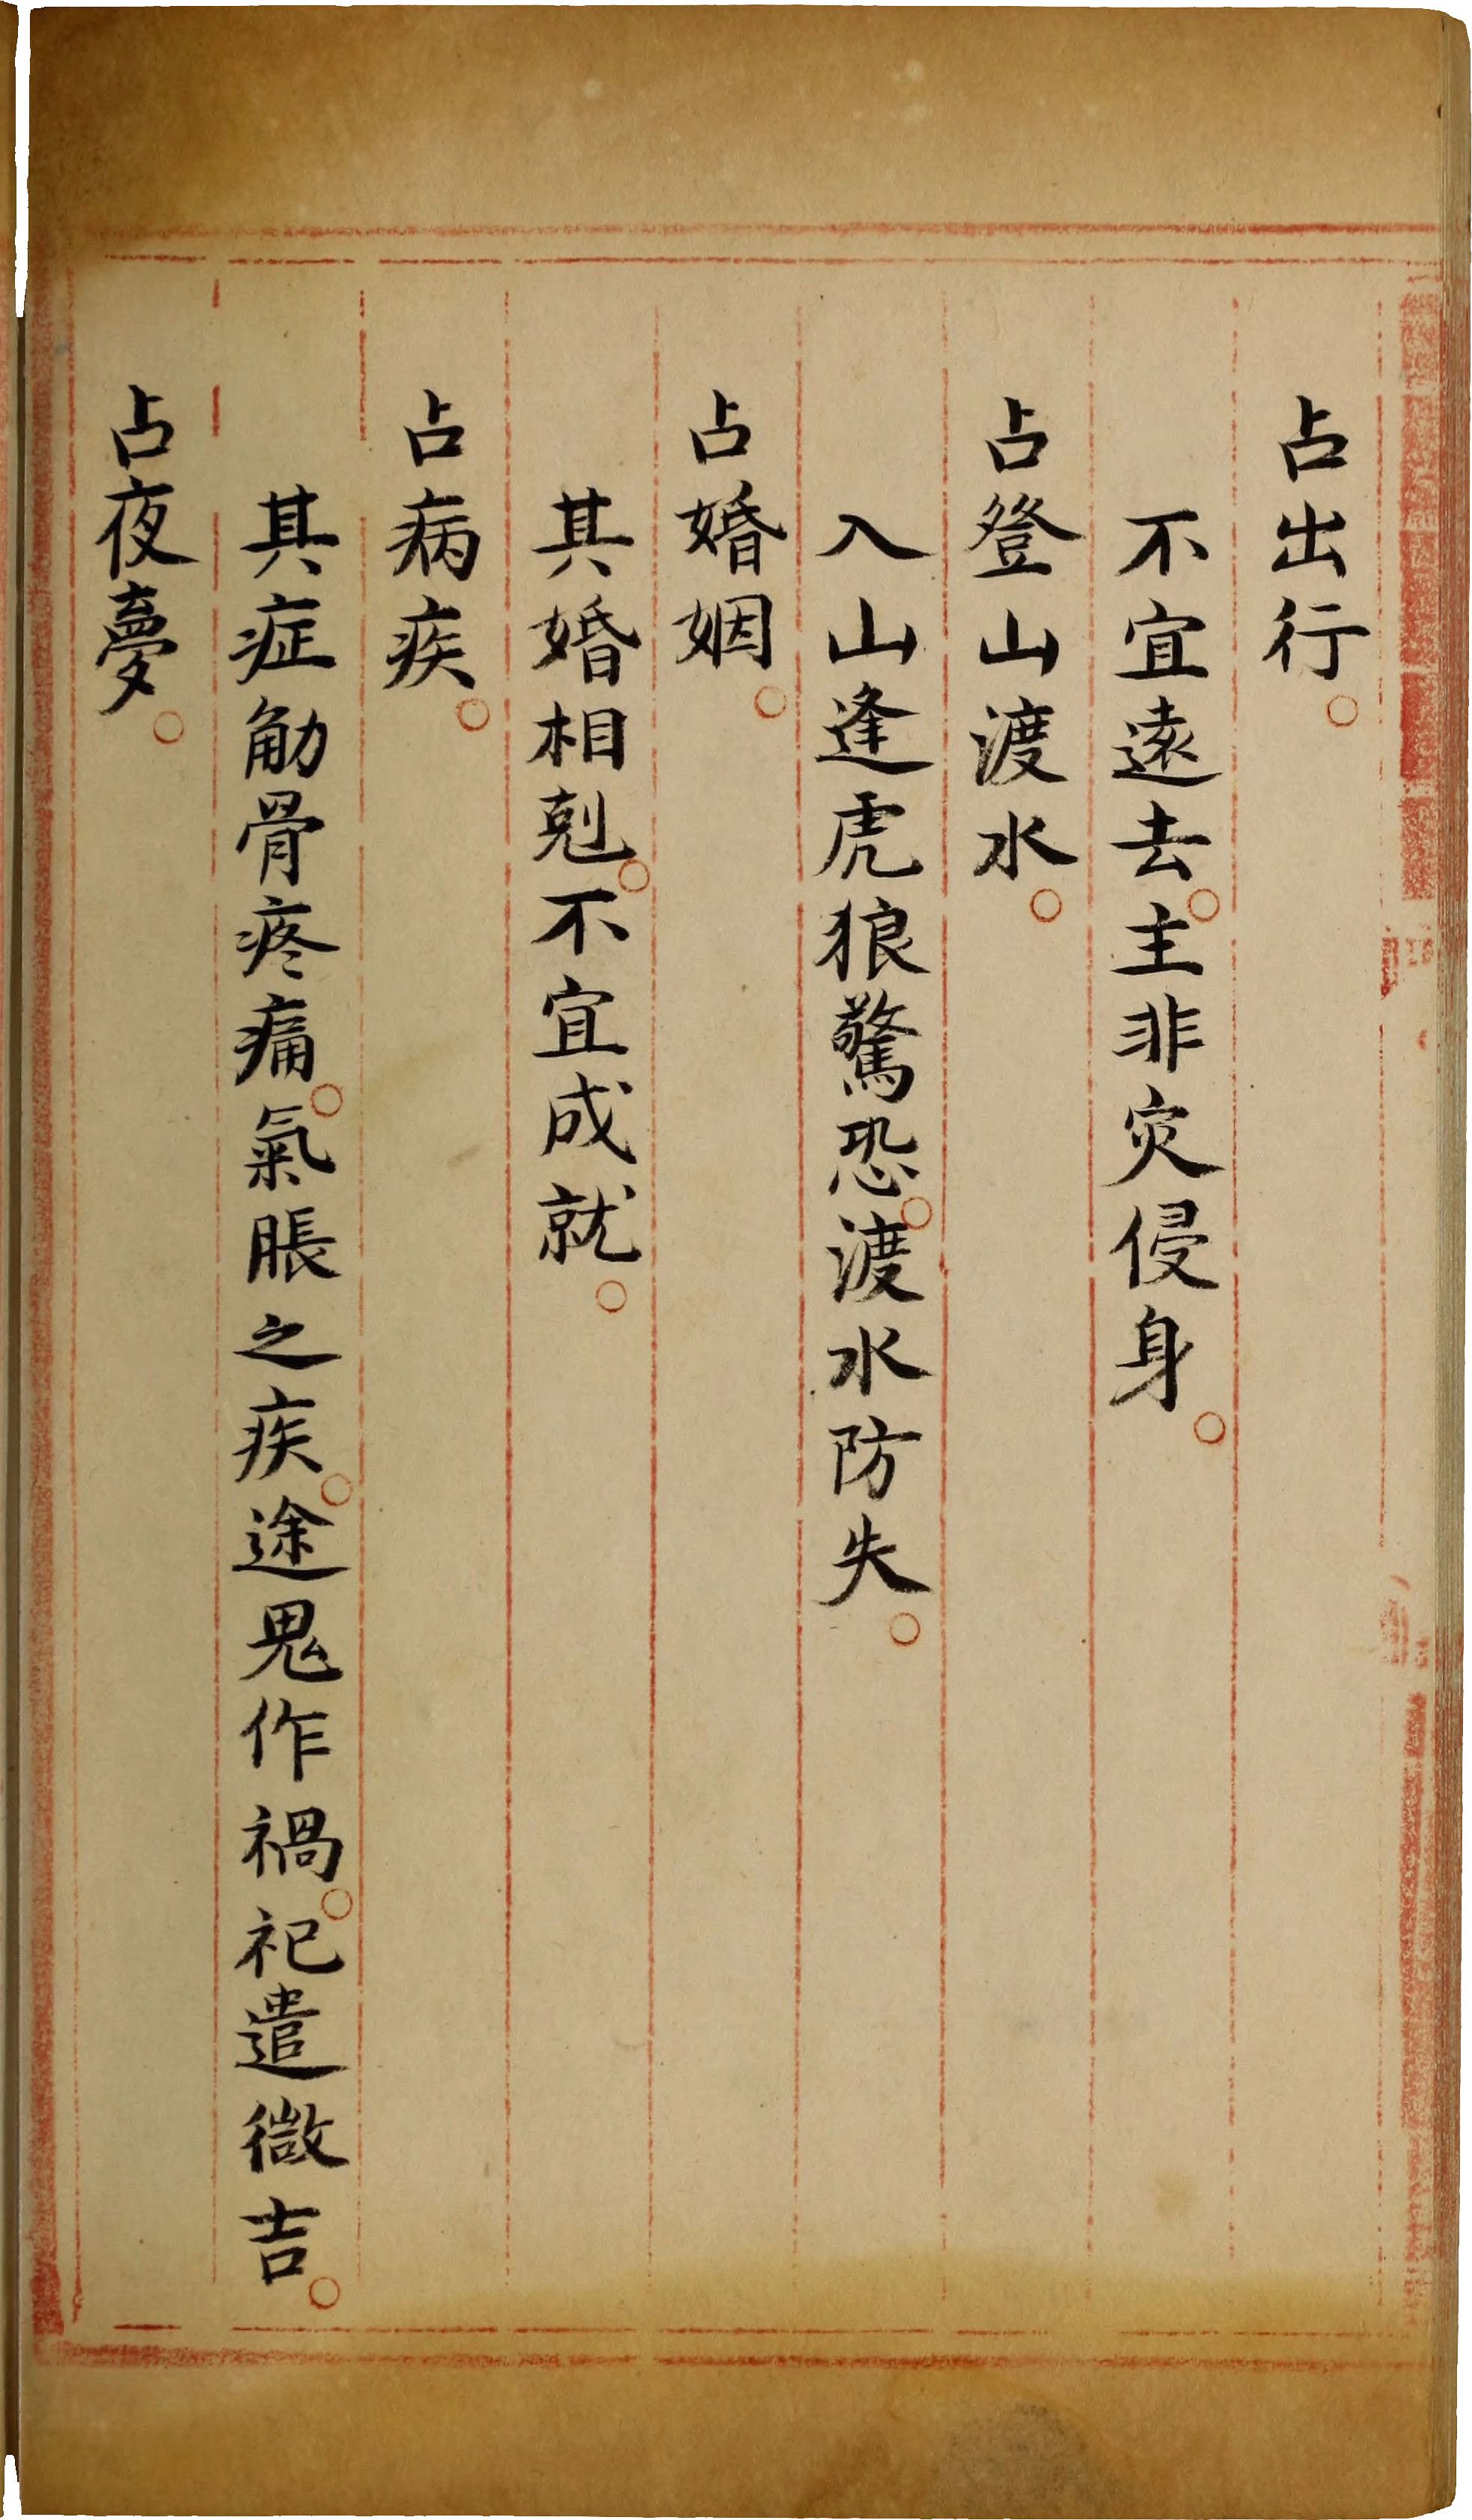 占出行。
不宜遠去。主非灾侵身。
占登山渡水。
入山逢虎狼驚恐。渡水防失。
占婚姻。
其婚相剋。不宜成就。
占病疾。
其症觔骨疼痛。氣脹之疾。途鬼作禍。祀遣微吉。
占夜夢。